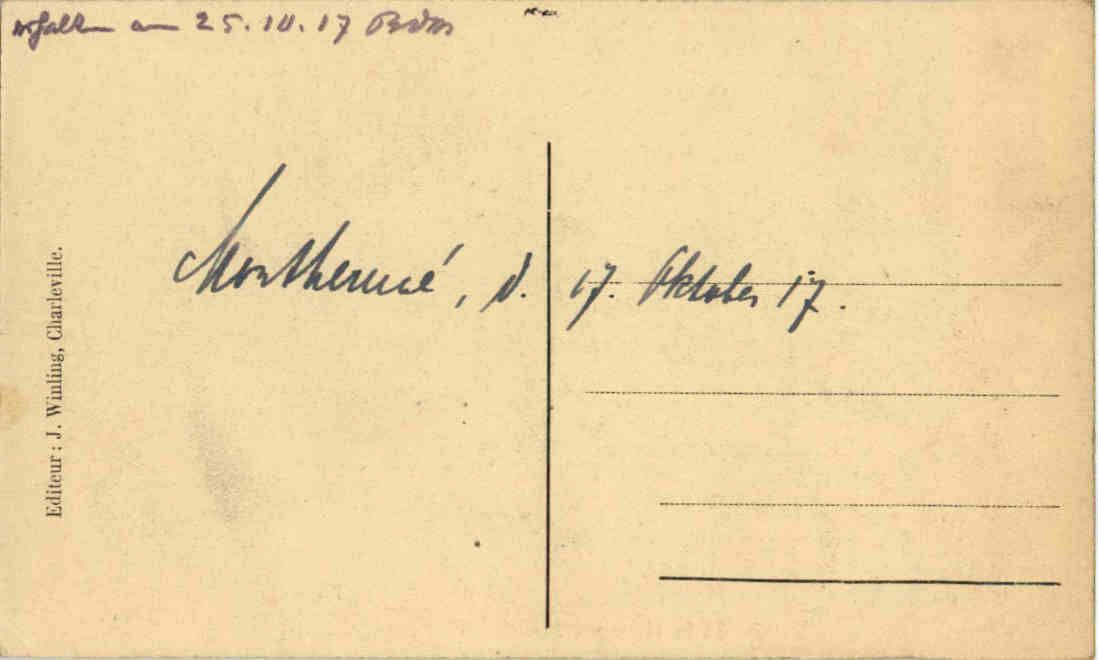 erhalten am 25.10.17
Monthermé, d. 17. Oktober 17.
Editeur : J. Winling, Charleville.